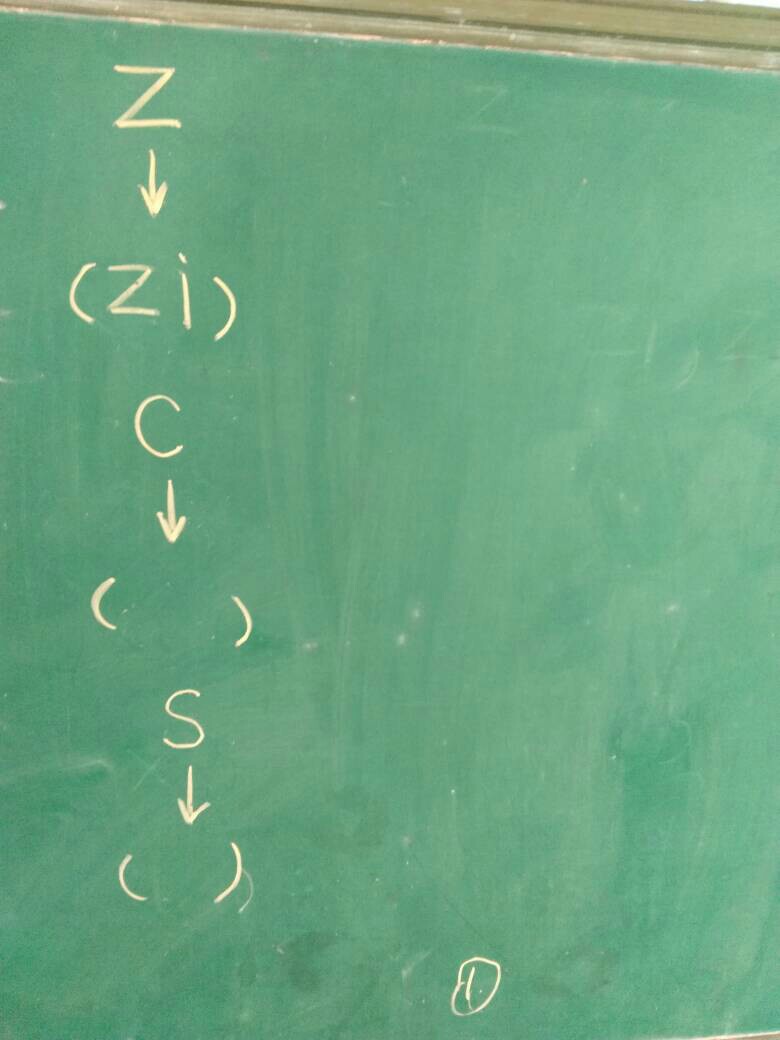 Z
↓
(Zi)
C
↓
( )
S
↓
( )
①